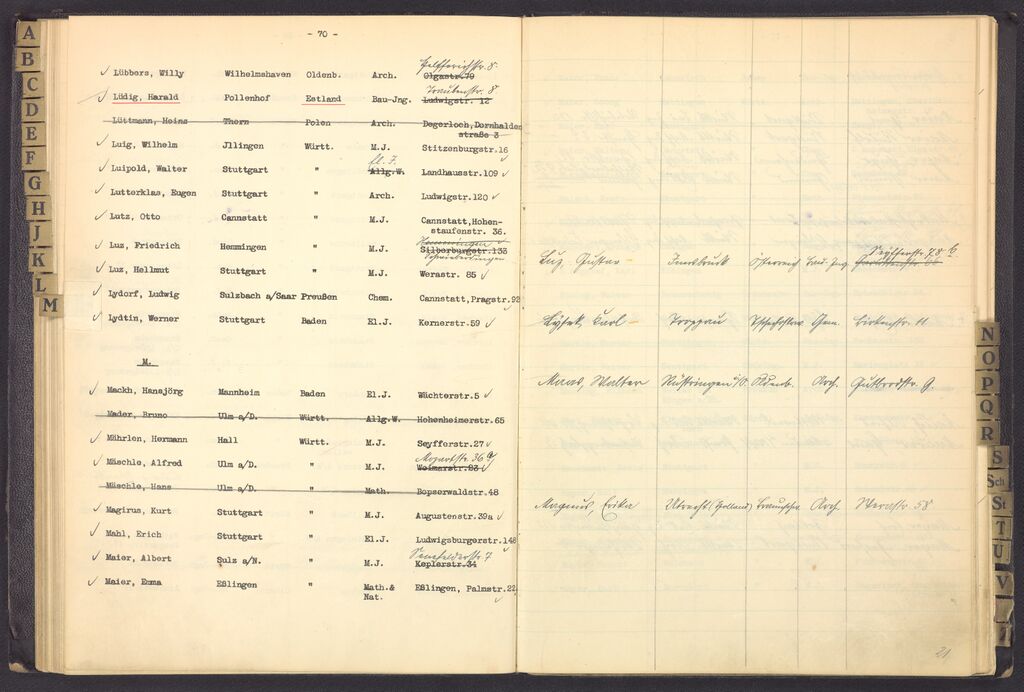 - 70 -
Lübbers, Willy Wilhelmshaven Oldenb. Arch. Olgastr.79
Lüdig, Harald Pollenhof Estland Bau-Jng. Traubenstr. 8. Ludwigstr. 12
Lüttmann, Heinz Thorn Polen Arch. Degerloch,Dornhalden
straße 3
Luig, Wilhelm Jllingen Württ. M.J. Stitzenburgstr.16
Luipold, Walter Stuttgart " fl. J. Allg.W. Landhausstr.109
Lutterklas, Eugen Stuttgart " Arch. Ludwigstr.120
Lutz, Otto Cannstatt " M.J. Cannstatt,Hohen-
staufenstr. 36.
Luz, Friedrich Hemmingen " M.J. Silberburgstr.138
Luz, Hellmut Stuttgart " M.J. Werastr. 85
Lydorf, Ludwig Sulzbach a/Saar Preußen Chem. Cannstatt,Pragstr.92
Lydtin, Werner Stuttgart Baden El.J. Kernerstr.59
M.
Mackh, Hansjörg Mannheim Baden El.J. Wächterstr.5
Mader, Bruno Ulm a/D. Württ. Allg.W. Hohenheimerstr.65
Mährlen, Hermann Hall Württ. M.J. Seyfferstr.27
Mäschle, Alfred Ulm a/D. " M.J. Mozartstr. 36 a Weimarstr.23
Mäschle, Hans Ulm a/D. " Math. Bopserwaldstr.48
Magirus, Kurt Stuttgart " M.J. Augustenstr.39a
Mahl, Erich Stuttgart " El.J. Ludwigsburgerstr.148
Maier, Albert Sulz a/N. " M.J. Senefelderstr. 7 Keplerstr.34
Maier, Emma Eßlingen " Math.& Eßlingen, Palmstr.22
Nat.
Luz, Gustav - Innsbruck Österreich Bau-Jng.
Carl - Troppau Birkenstr. 11
Maas, Walter Rüstringen i/O. Oldenb. Arch. Gutbrodstr. 9.
Magnus, Erika Utrecht (Holland) Arch Werastr. 58
21
A
B
C
D
E
F
G
H
J
K
L
M
N
O
P
Q
R
S
Sch
St
T
U
V